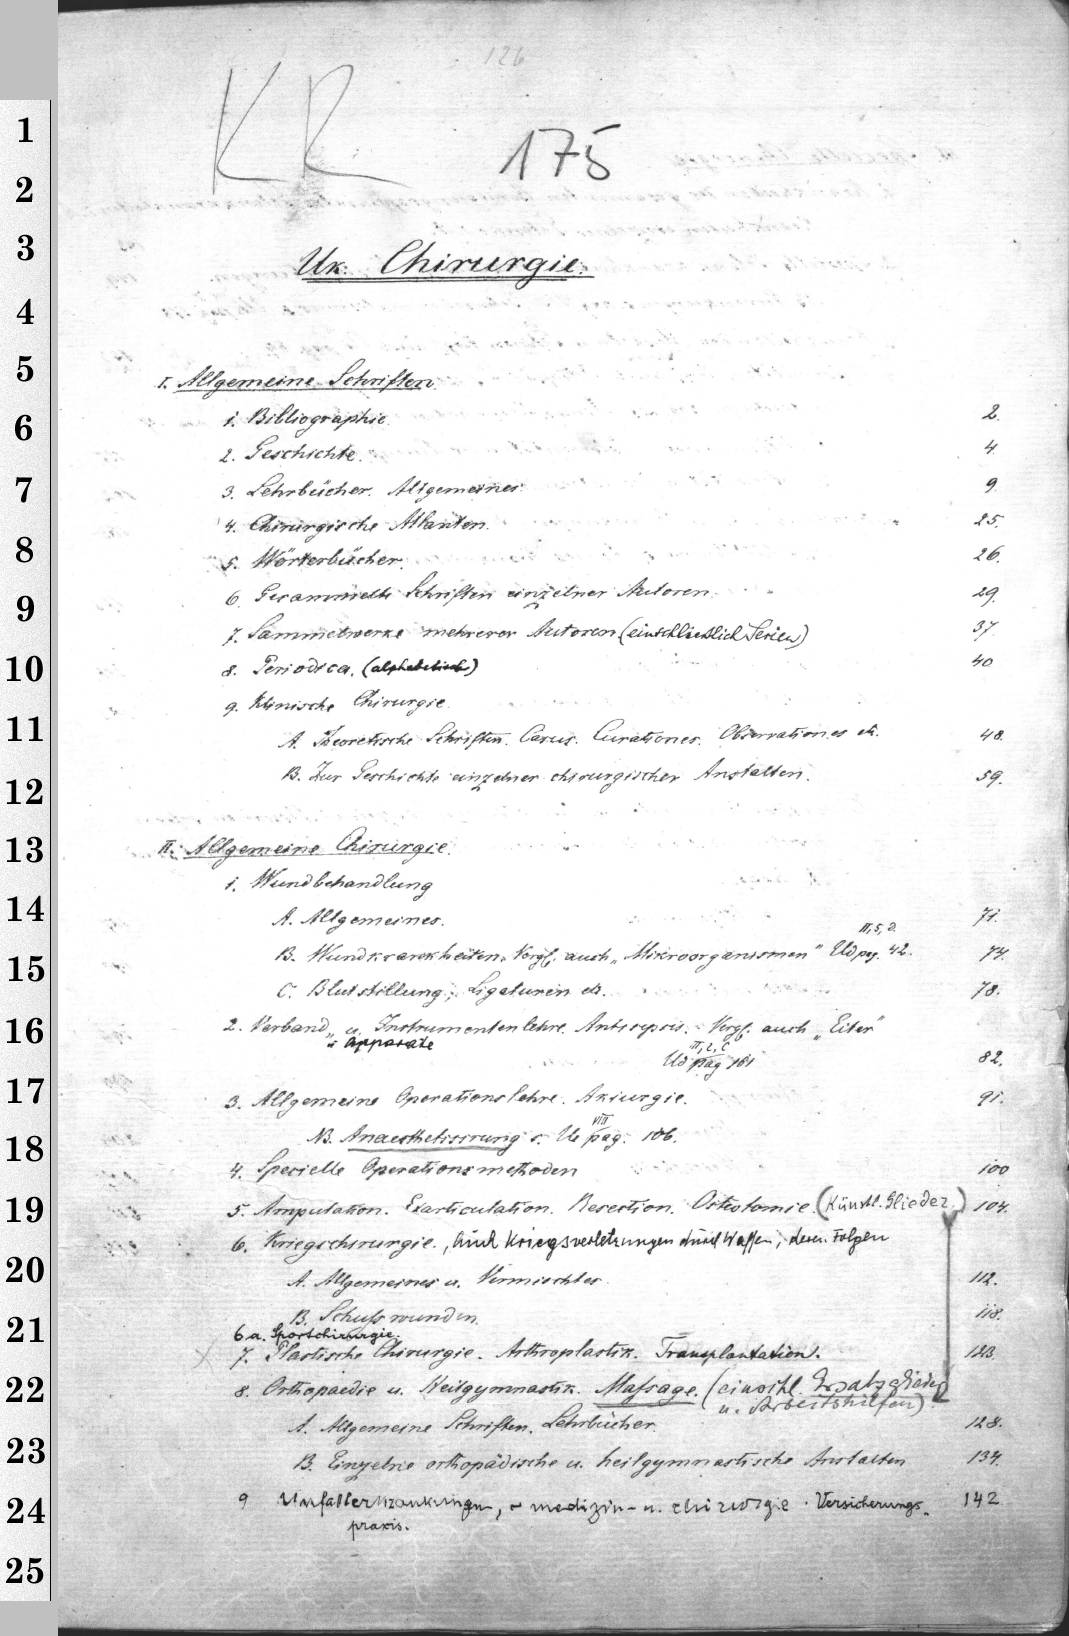 126
KR 175
Uk. Chirurgie.
I. Allgemeine Schriften
1. Bibliographie 2.
2. Geschichte. 4.
3. Lehrbücher. Allgemeines. 9.
4. Chirurgische Atlanten. 25.
5. Wörterbücher. 26.
6. Gesammelte Schriften einzelner Autoren. 29.
7. Sammelwerke mehrerer Autoren (einschließlich Serien) 37.
8. Periodica. (alphabetisch) 40
9. Klinische Chirurgie.
A. Theoretische Schriften. Casus. Curationes. Observationes etc. 48.
B. Zur Geschichte einzelner chirurgischer Anstalten. 59.
II. Allgemeine Chirurgie.
1. Wundbehandlung
A. Allgemeines. 71.
III, 5, 2.
B. Wundkrankheiten. Vergl. auch „Mikroorganismen" Ud pag. 42. 74.
C. Blutstillung; Ligaturen etc. 78.
2. Verband- u. Instrumentenlehre. Antisepsis. Vergl. auch „Eiter"
u Apparate
III, 2, C
Ud pag 181 82.
3. Allgemeine Operationslehre. Akiurgie. 91.
VIII
NB. Anaesthetisirung s. Ue pag. 106.
4. Specielle Operationsmethoden 100
5. Amputation. Exarticulation. Resection. Osteotomie. (Künstl. Glieder.) 104.
6. Kriegschirurgie., Auch Kriegsverletzungen durch Waffen, deren Folgen
A. Allgemeines u. Vermischtes. 112.
B. Schusswunden. 118.
6a. Sportchirurgie.
7. Plastische Chirurgie. Arthroplastik. Transplantation. 123.
8. Orthopaedie u. Heilgymnastik. Massage. (einschl. Ersatzglieder
u. Arbeitshilfen)
A. Allgemeine Schriften. Lehrbücher. 128.
B. Einzelne orthopädische u. heilgymnastische Anstalten 134.
9 Unfallerkrankungen, - medizin - u. chirurgie. Versicherungs- 142
praxis.